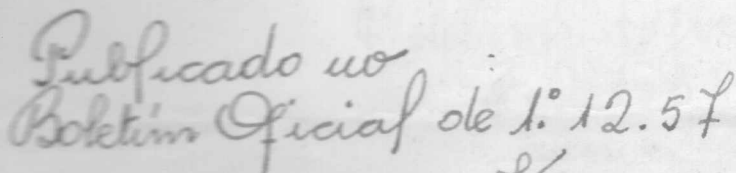 Publicado no
Boletim Oficial de 1.º 12.57